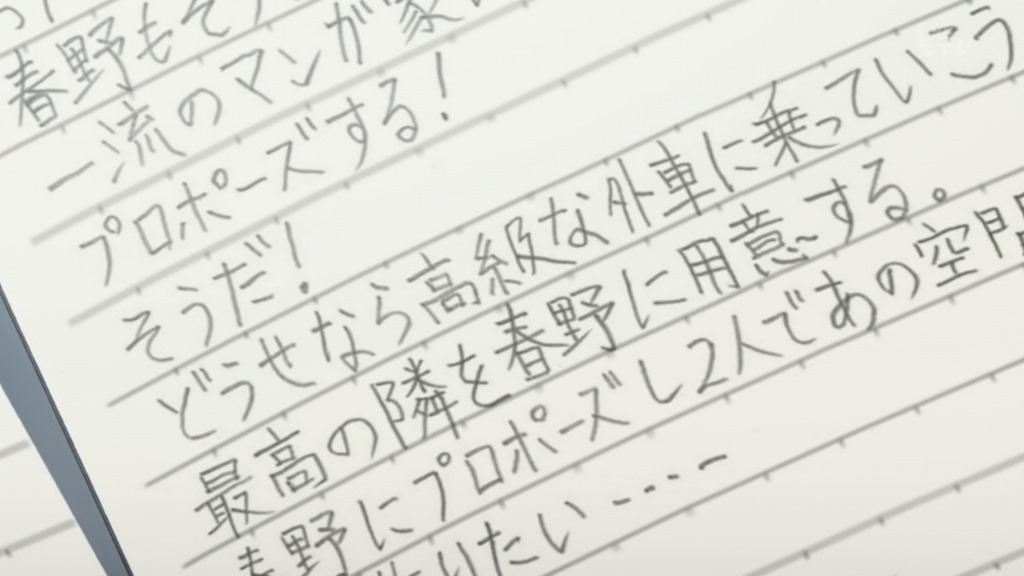 春野もそ
一流のマンガ家
プロポーズする!
そうだ!
どうせなら高級な外車に乗っていこう
最高の隣を春野に用意する。
春野にプロポーズし2人であの空間
りたい----